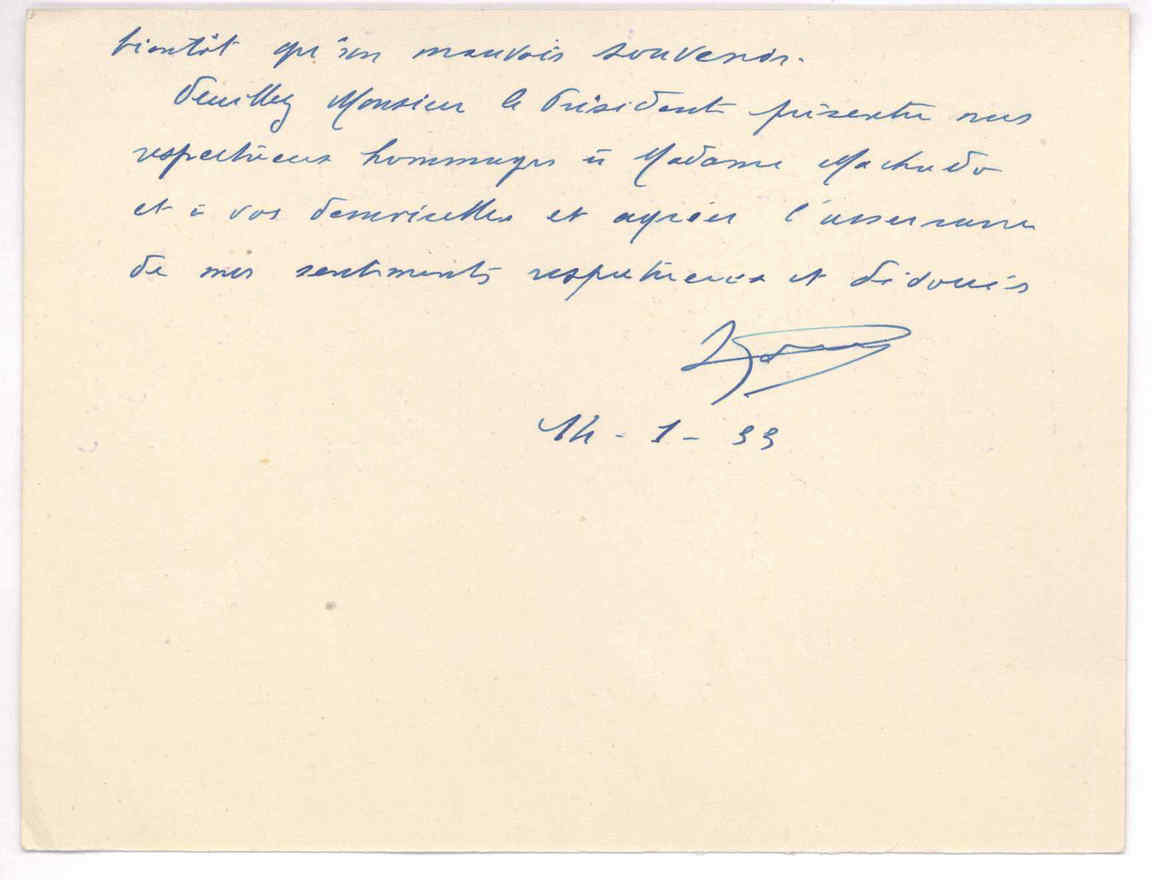 bientôt qu'un mauvais souvenir.
Veuillez Monsieur le Président présenter nos
respectueux hommages à Madame Machado
et à vos demoiselles et agréer l'assurance
de mes sentiments respectueux et dévoués
14 - 1 - 33